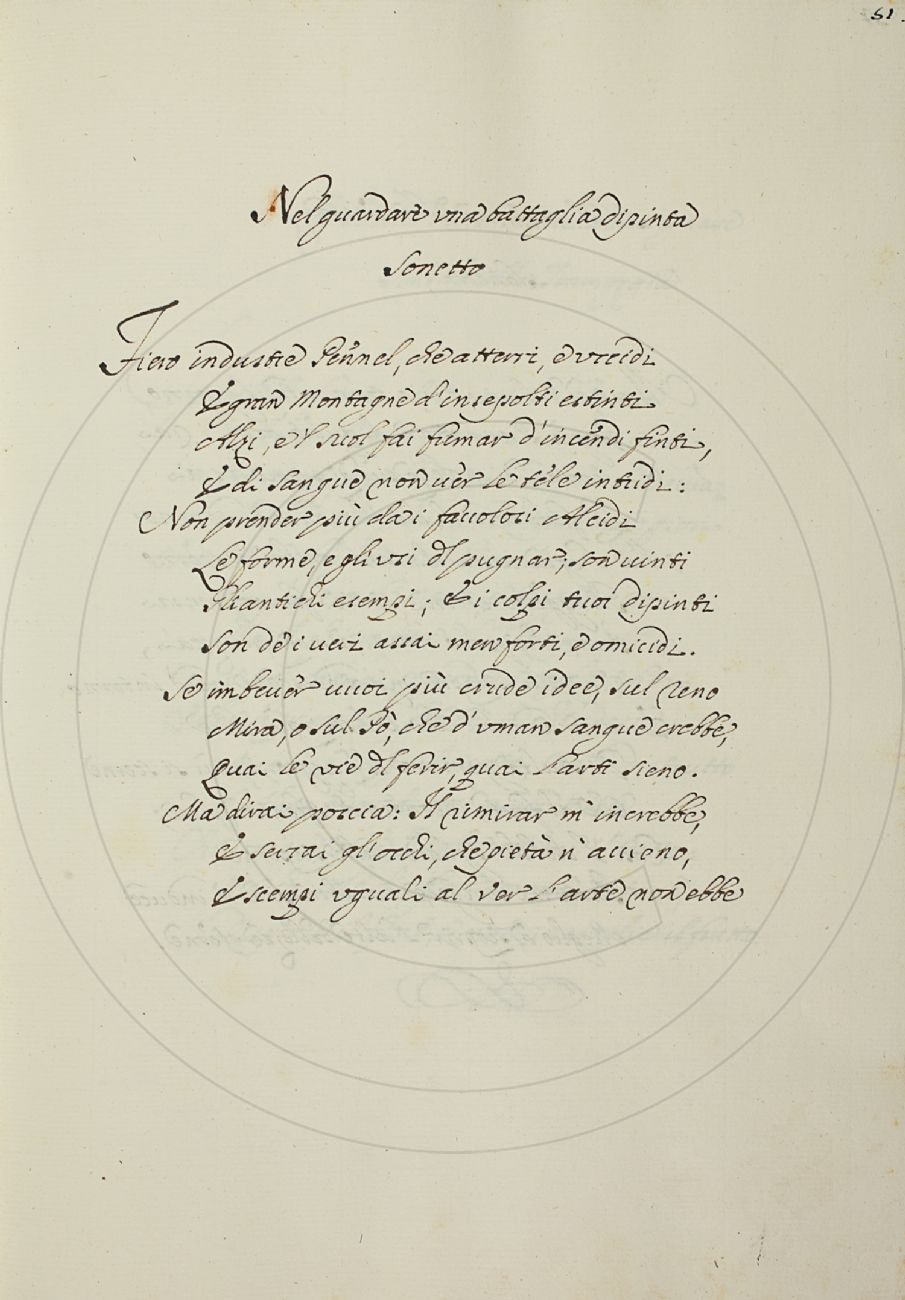 51.
Nel guardare vna battaglia dipinta
Sonetto
Fiero industre Pennel, che atterri, e vccidi
E gran Montagne d'insepolti estinti
Alzi, e 'l suol fai fumar d'incendi finti,
E di sangue non vèr le téle intridi:
Non prender più da i favolosi Alcidi
Le forme, e gli vsi del pugnar; son vinti
Gli antichi esempi; E i colpi tuoi dipinti
Son de i veri assai men forti, e omicidi.
Se imbever vuoi più crude idee, sul Reno
Mira, o sul Pò, che d'vman sangue crebbe,
Quai le vie del ferir, quai l'arti sieno.
Ma dirai poscia: Il rimirar m'increbbe,
E serrai gl'occhi, che pietà n'avieno,
E scempi vguali al ver l'arte non ebbe